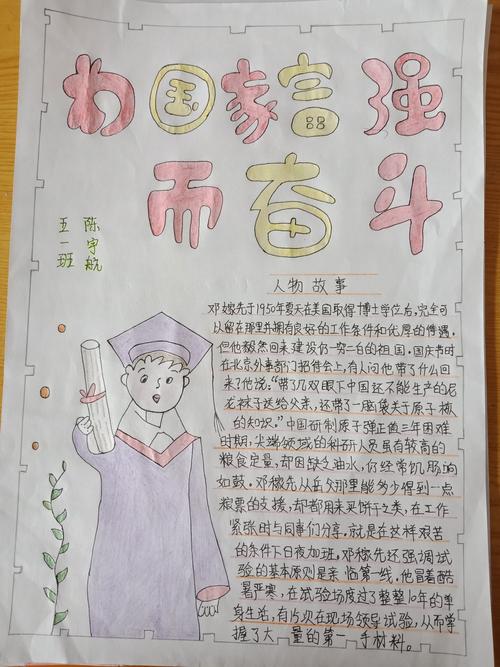 为国家富强
而奋斗
陈宇航
五一班
人物故事
邓稼先于1950年夏天在美国取得博士学位后,完全可
以留在那里并拥有良好的工作条件和优厚的待遇。
但他毅然回来建设仍一穷二白的祖国。国庆节时
在北京外事部门招待会上,有人问他带了什么回
来?他说:“带了几双眼下中国还不能生产的尼
龙袜子送给父亲,还带了一脑袋关于原子核
的知识。”中国研制原子弹正值三年困难
时期,尖端领域的科研人员虽有较高的
粮食定量,却因缺乏油水,仍经常饥肠响
如鼓。邓稼先从岳父那里能多少得到一点
粮票的支援,却都用来买饼干之类,在工作
紧张时与同事们分享。就是在这样艰苦
的条件下日夜加班。邓稼先还强调试
验的基本原则是亲临第一线,他冒着酷
暑严寒,在试验场度过了整整10年的单
身生活,有15次在现场领导试验,从而掌
握了大量的第一手材料。